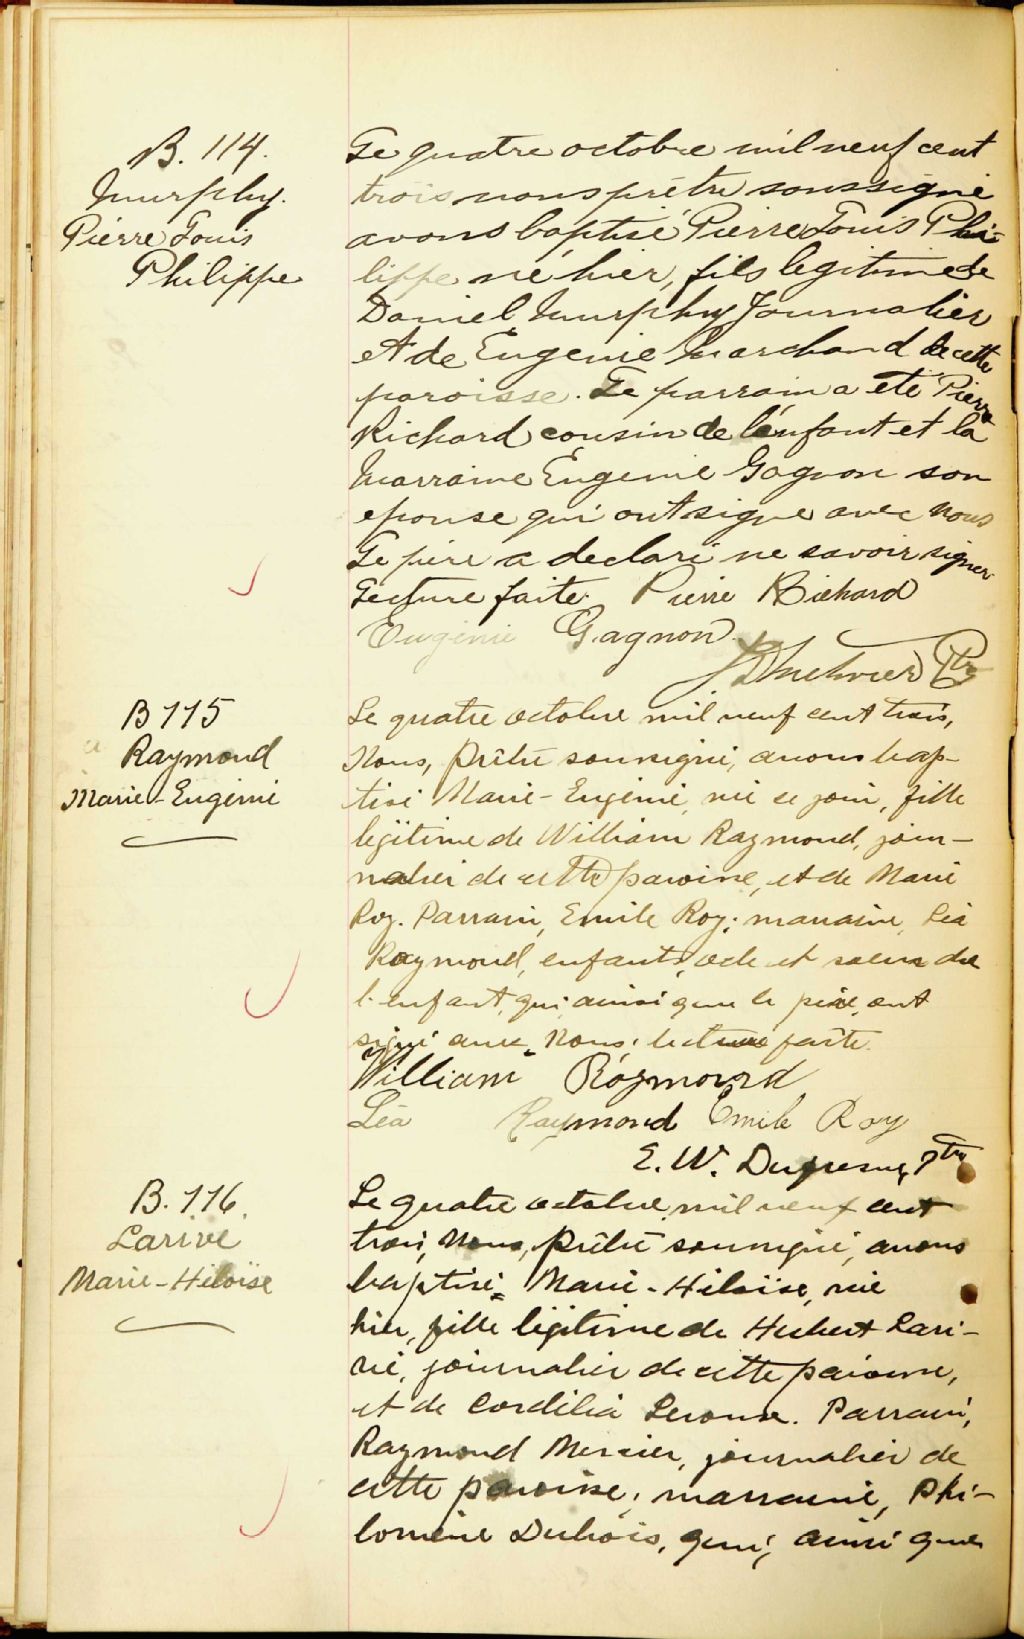 B. 114.
Murphy.
Pierre Louis
Philippe
Le quatre octobre mil neuf cent
trois nous prêtre soussigné
avons baptisé Pierre Louis Phi-
lippe né hier, fils legitime de
Daniel Murphy Journalier
et de Eugenie Marchand de cette
paroisse. Le parrain a eté Pierre
Richard cousin de l'énfant et la
Marraine Eugenie Gagnon son
epouse qui ont signe avec nous
Le père a declaré ne savoir signer
Lecture faite. Pierre Richard
Eugénie Gagnon.
Ptr
B 115
Raymond
Marie-Eugénie
Le quatre octobre mil neuf cent trois,
Nous, prêtre soussigné, avons bap-
tisé Marie-Eugénie, née ce jour, fille
légitime de William Raymond, jour-
nalier de cette paroisse, et de Marie
Roy. Parrain, Emile Roy; marraine, Léa
Raymond, enfants, et soeur de
l'enfant, qui, ainsi que le père, ont
signé avec Nous. lecture faite.
William Raymond
Léa Raymond Emile Roy
E. W. Dufresne, Ptr
B. 116.
Larivé
Marie-Héloïse
Le quatre octobre, mil neuf cent
trois, Nous, prêtre soussigné, avons
baptisé Marie-Héloïse, née
hier, fille légitime de Hubert Lari-
vé, journalier de cette paroisse,
et de Cordélia Leroux. Parrain,
Raymond Mercier, journalier de
cette paroisse; marraine, Phi-
lomène Dubois, qui, ainsi que